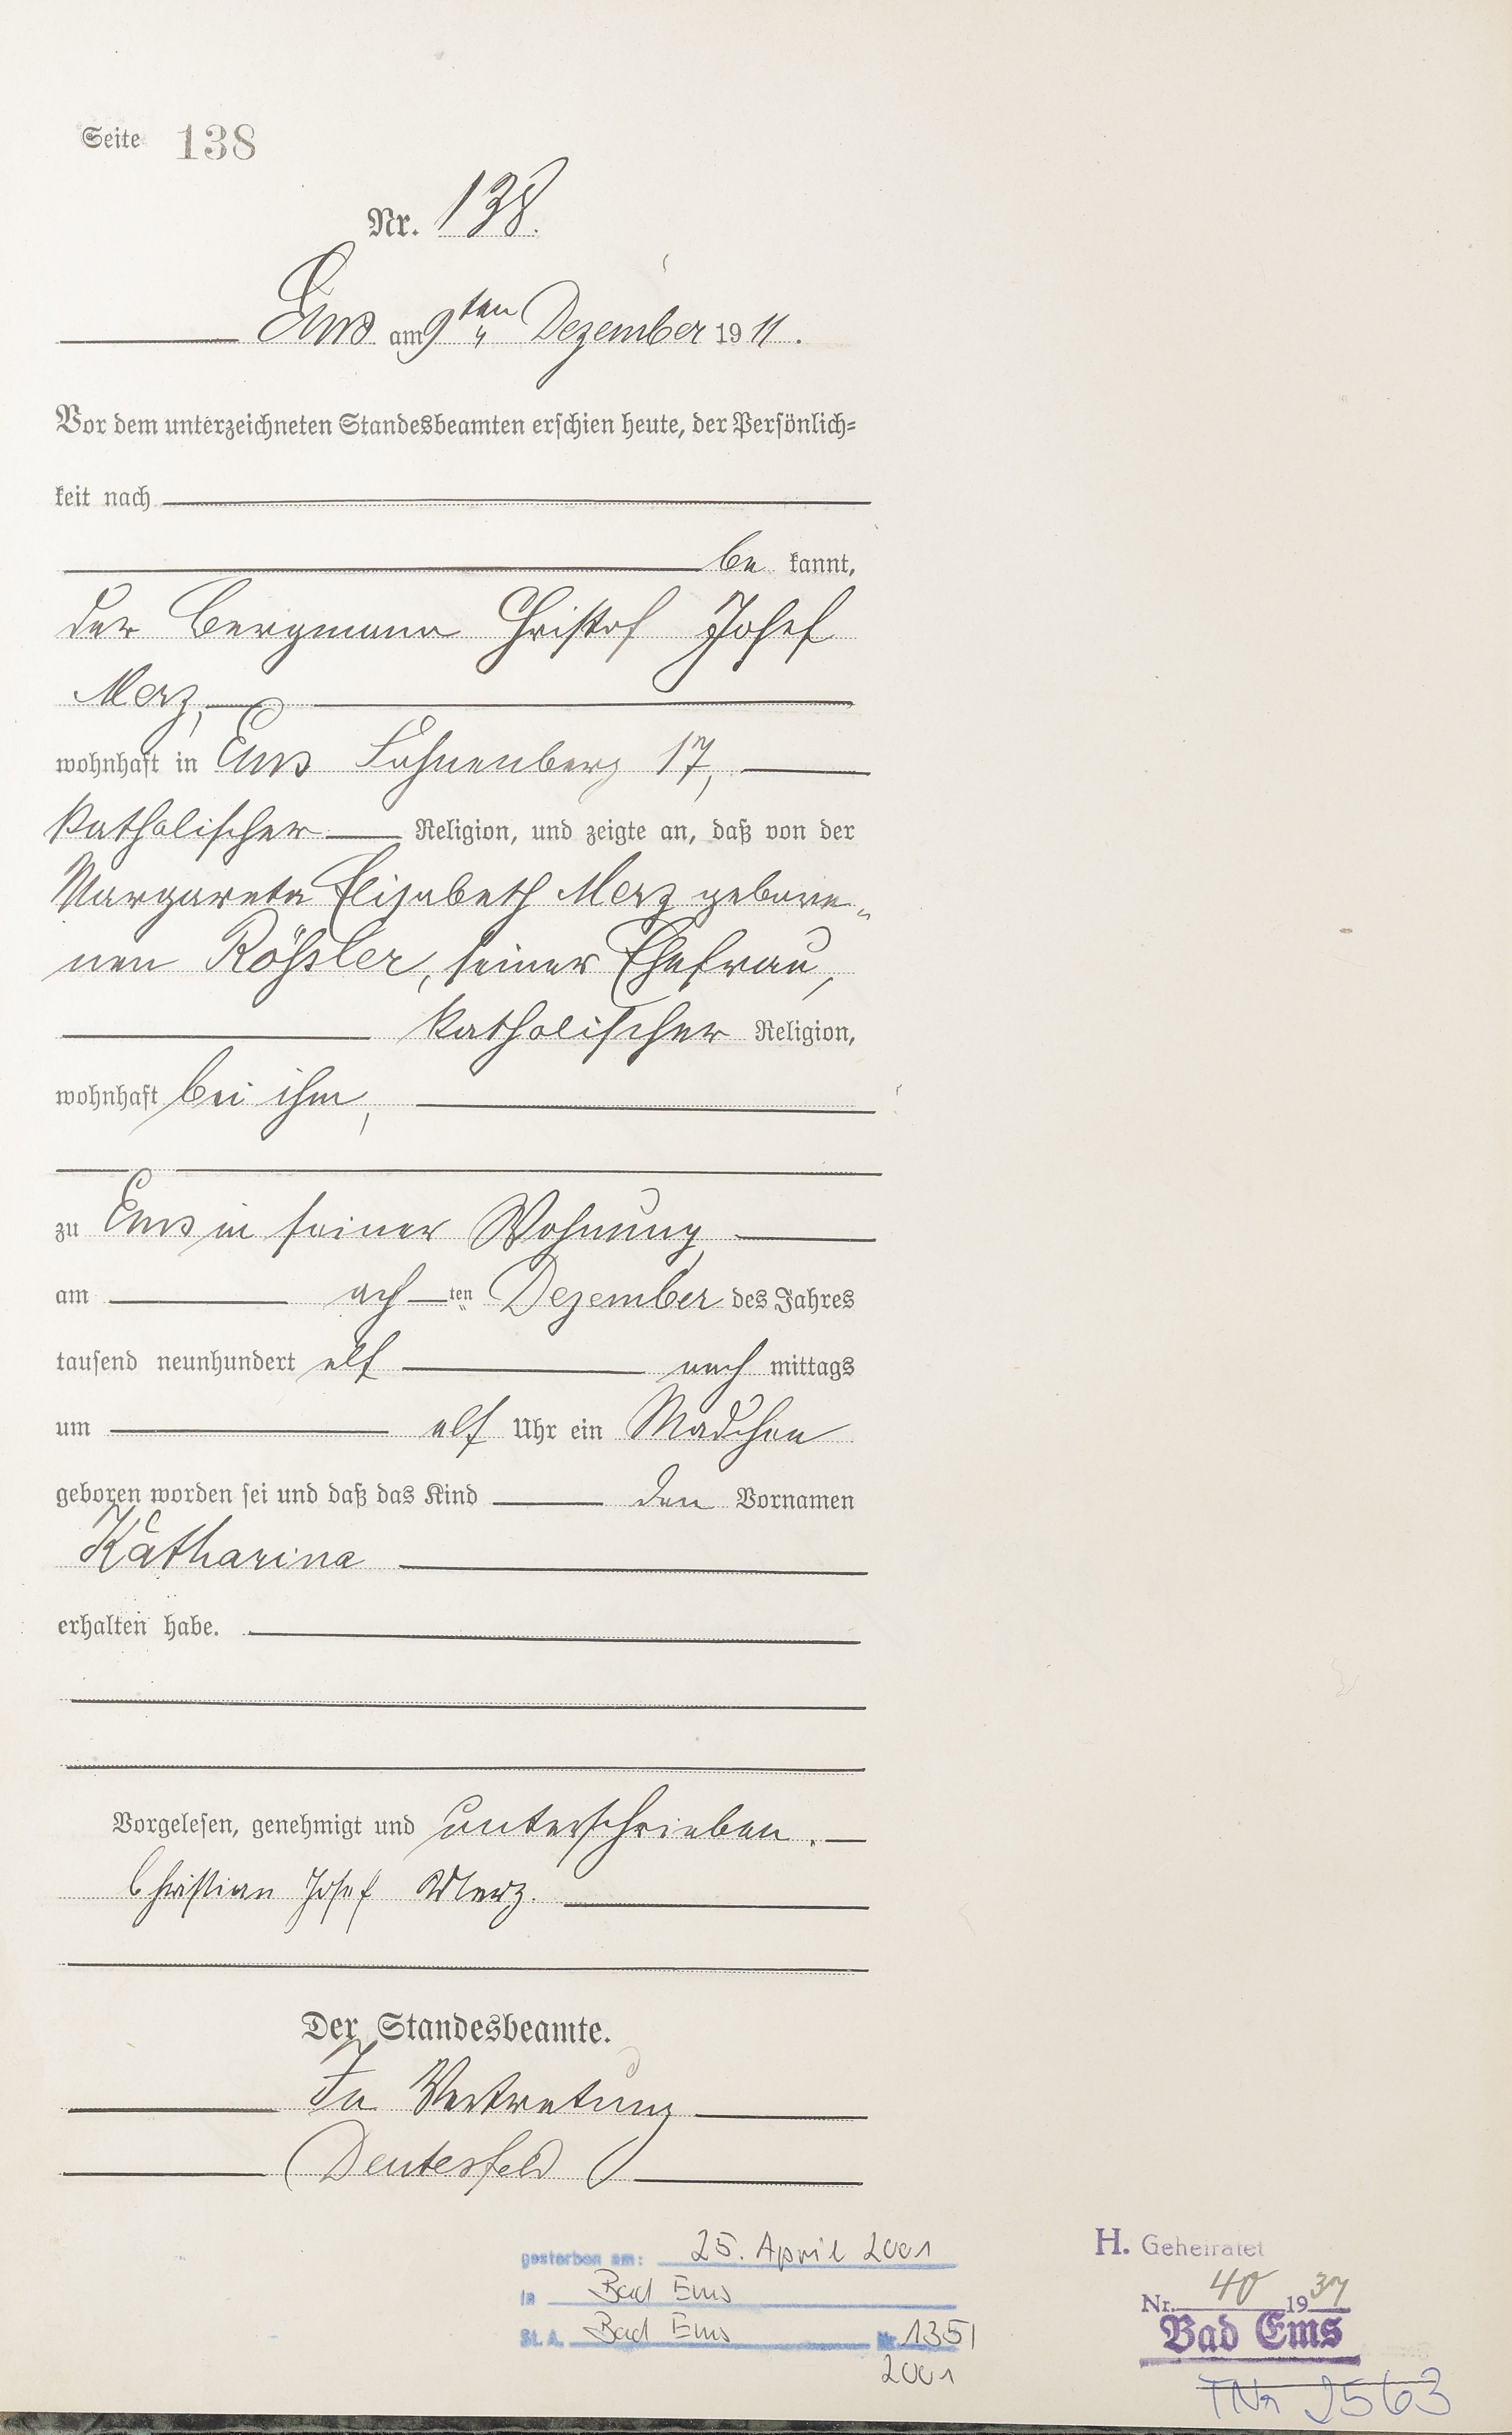 Seite 138
Nr. 138.
Ems am 9ten Dezember 1911.
Vor dem unterzeichneten Standesbeamten erschien heute, der Persönlich=
keit nach
be kannt,
der Bergmann Christof Josef
Merz,
wohnhaft in Ems Fahnenberg 17,
katholischer Religion, und zeigte an, daß von der
Margareta Elisabeth Merz gebore„
nen Rößler, seiner Ehefrau,
katholischer Religion,
wohnhaft bei ihm,
zu Ems in seiner Wohnung
am ach ten Dezember des Jahres
tausend neunhundert elf nach mittags
um elf Uhr ein Mädchen
geboren worden sei und daß das Kind den Vornamen
Katharina
erhalten habe.
Vorgelesen, genehmigt und unterschrieben.
Christian Josef Merz.
Der Standesbeamte.
In Vertretung
Deutesfeld
gestorben am: 25. April 2001
in Bad Ems
St. A. Bad Ems Nr. 135/
2001
H. Geheiratet
Nr. 40 1937
Bad Ems
TNr 2563